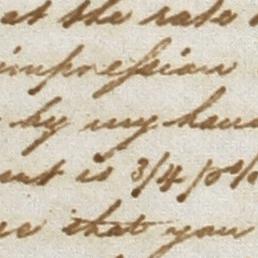 at the rate
impression
by my hand
is 3/4 p%
that you